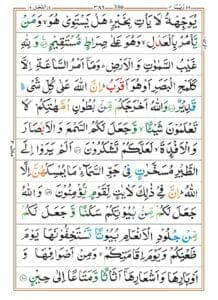 ربما ١٤ ٣٨٦ النحل ١٦
يُوَجِّهْهُّ لَا يَاْتِ بِخَيْرٍ ؕ هَلْ يَسْتَوِيْ هُوَ ۙ وَمَنْ
يَّاْمُرُ بِالْعَدْلِ ۙ وَهُوَ عَلٰى صِرَاطٍ مُّسْتَقِيْمٍ ۝ وَلِلّٰهِ
غَيْبُ السَّمٰوٰتِ وَالْاَرْضِ ؕ وَمَاۤ اَمْرُ السَّاعَةِ اِلَّا
كَلَمْحِ الْبَصَرِ اَوْ هُوَ اَقْرَبُ ؕ اِنَّ اللّٰهَ عَلٰى كُلِّ شَيْءٍ
قَدِيْرٌ ۝ وَاللّٰهُ اَخْرَجَكُمْ مِّنْۢ بُطُوْنِ اُمَّهٰتِكُمْ لَا
تَعْلَمُوْنَ شَيْـًٔا ۙ وَّجَعَلَ لَكُمُ السَّمْعَ وَالْاَبْصَارَ
وَالْاَفْـِٕدَةَ ۙ لَعَلَّكُمْ تَشْكُرُوْنَ ۝ اَلَمْ يَرَوْا اِلَى
الطَّيْرِ مُسَخَّرٰتٍ فِيْ جَوِّ السَّمَآءِ ؕ مَا يُمْسِكُهُنَّ اِلَّا
اللّٰهُ ؕ اِنَّ فِيْ ذٰلِكَ لَاٰيٰتٍ لِّقَوْمٍ يُّؤْمِنُوْنَ ۝ وَاللّٰهُ
جَعَلَ لَكُمْ مِّنْۢ بُيُوْتِكُمْ سَكَنًا وَّجَعَلَ لَكُمْ
مِّنْ جُلُوْدِ الْاَنْعَامِ بُيُوْتًا تَسْتَخِفُّوْنَهَا يَوْمَ
ظَعْنِكُمْ وَيَوْمَ اِقَامَتِكُمْ ۙ وَمِنْ اَصْوَافِهَا وَ
اَوْبَارِهَا وَاَشْعَارِهَاۤ اَثَاثًا وَّمَتَاعًا اِلٰى حِيْنٍ ۝